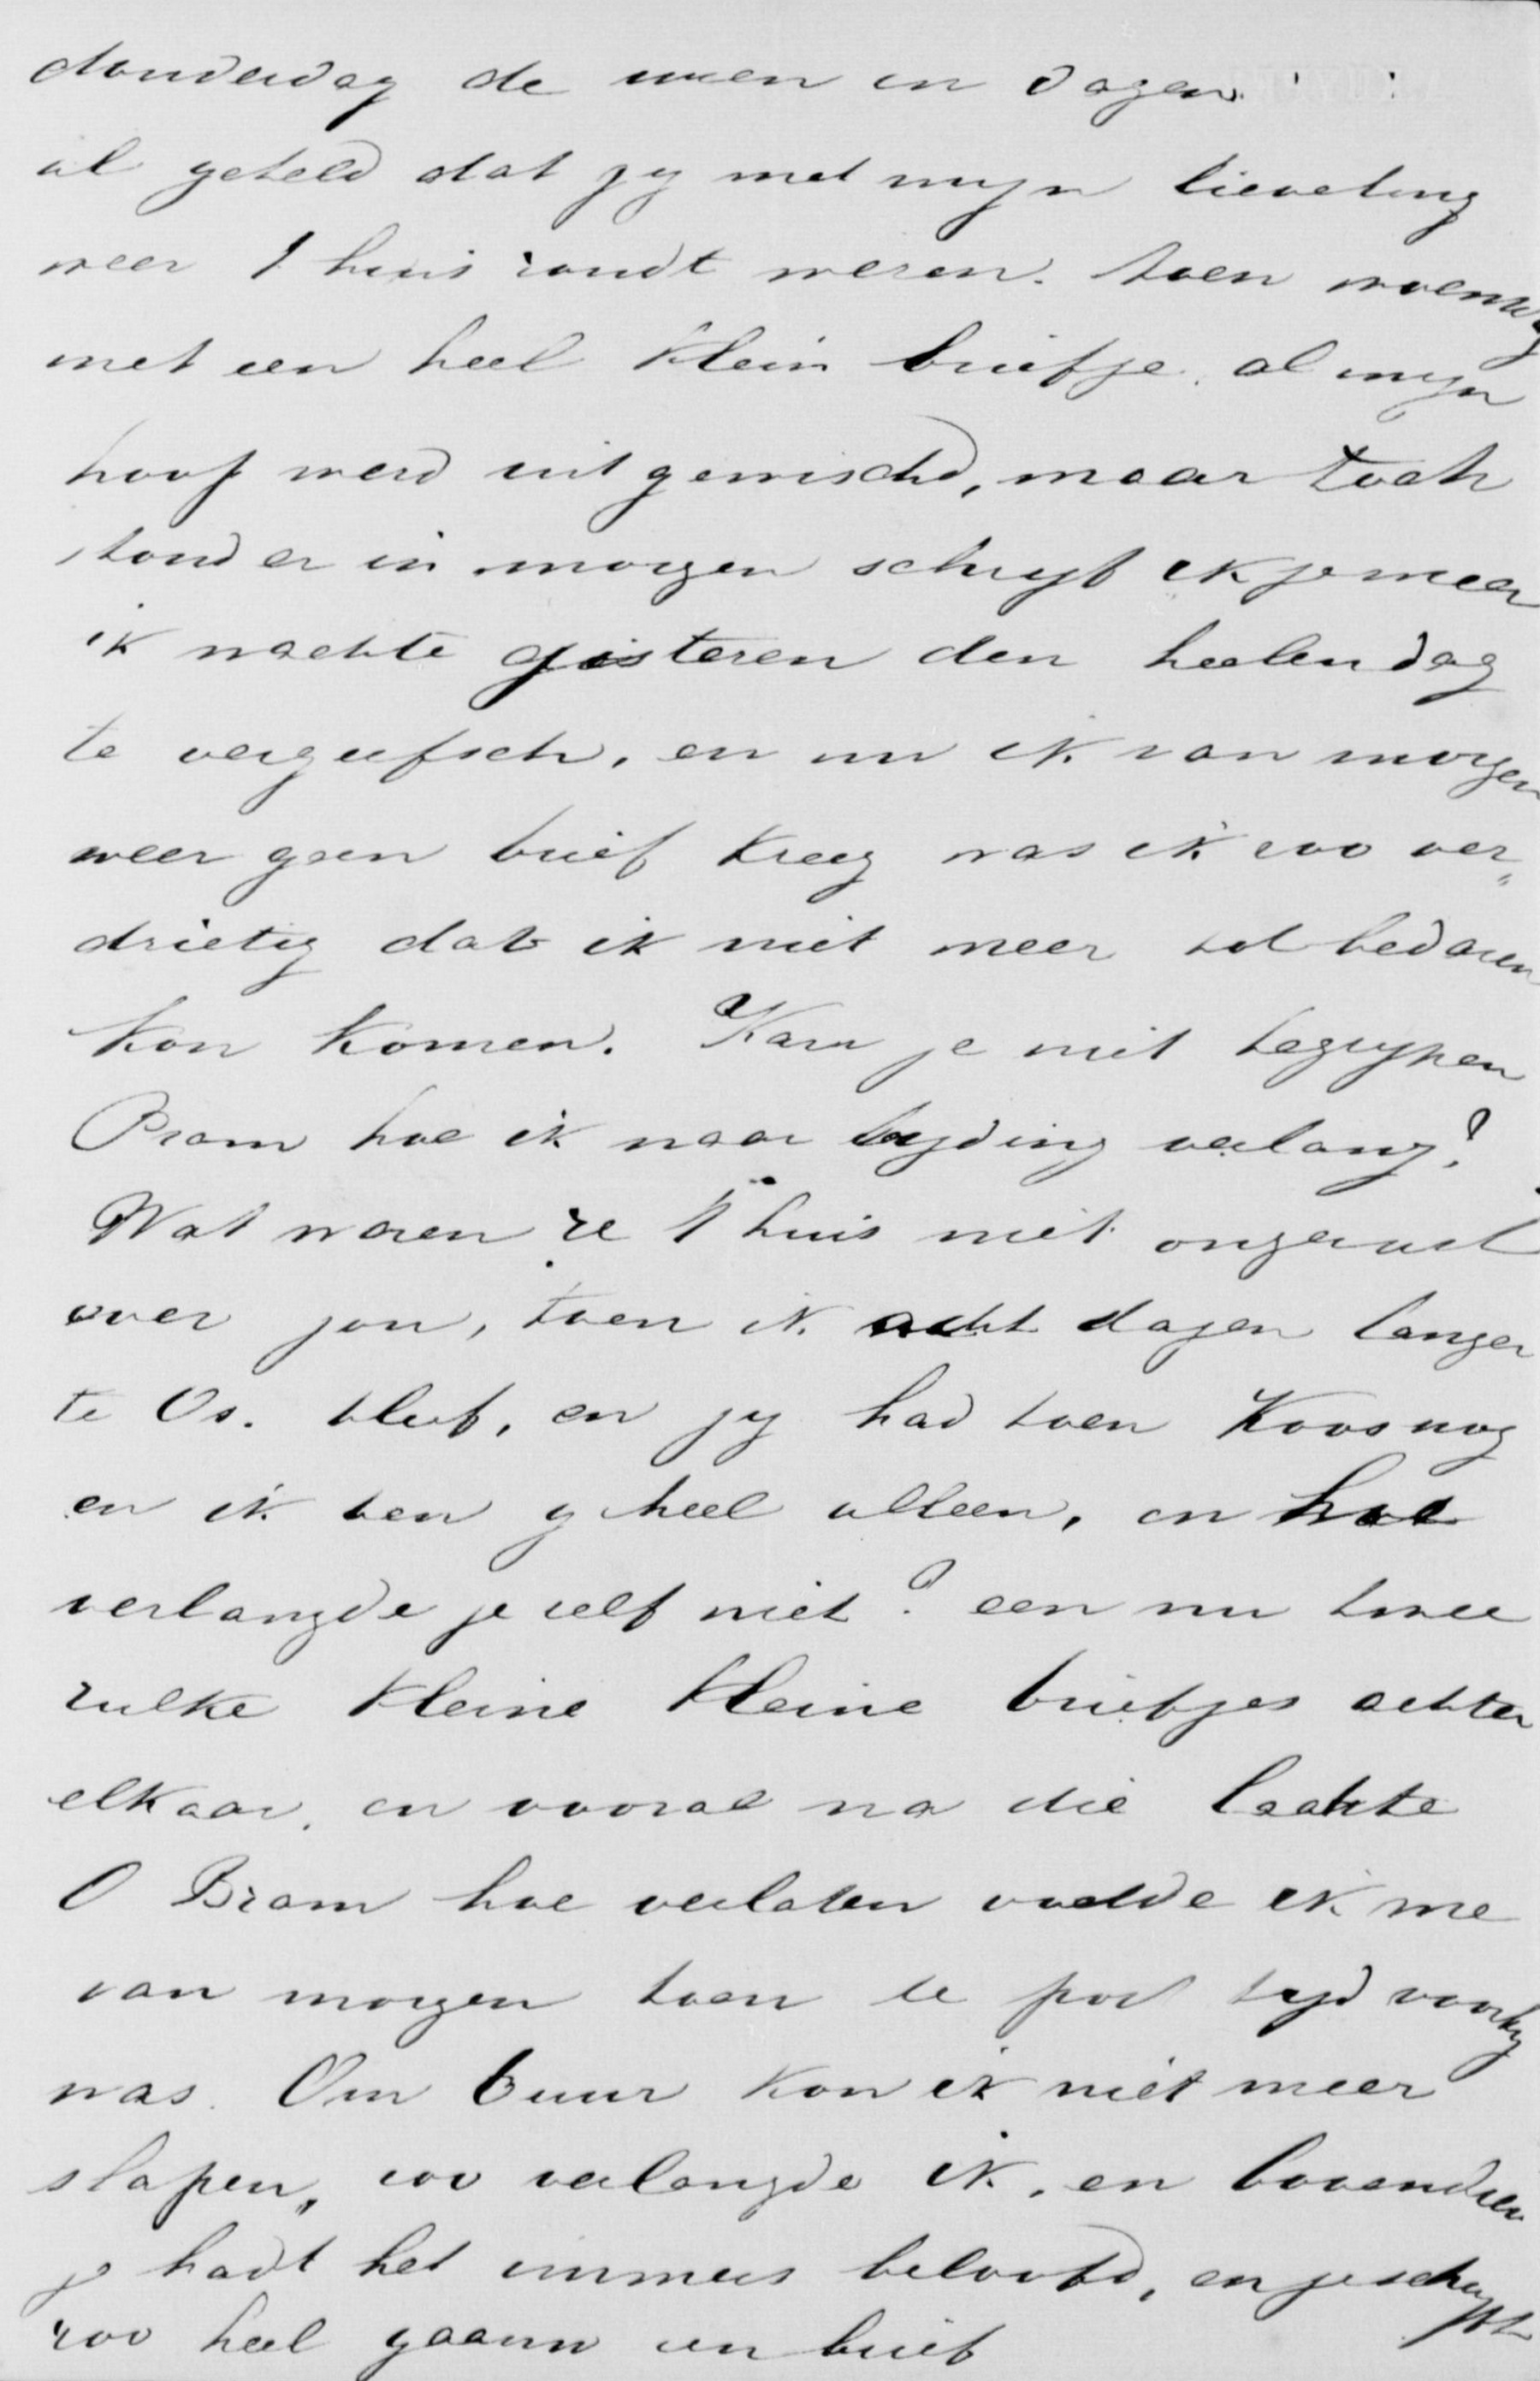 donderdag de uren en dagen
al geteld dat jy met myn lieveling
weer t huis zoudt wezen. toen woensdag
met een heel klein briefje. al myn
hoop werd uitgewischd, maar toch
stond er in morgen schryf ik je meer
ik wachte gisteren den heelen dag
te vergeefsch, en nu ik van morgen
weer geen brief kreeg was ik zoo ver„
drietig dat ik niet meer tot bedaren
kon komen. Kan je niet begrypen
Bram hoe ik naar tyding verlang?
Wat waren ze t huis niet ongerust
over jou, toen ik acht dagen langer
te Os. bleef, en jy had toen Koos nog
en ik ben geheel alleen, en hoe
verlangde je zelf niet? een nu twee
zulke kleine kleine briefjes achter
elkaar, en vooral na die laatste
O Bram hoe verlaten voelde ik me
van morgen toen de post tyd voorby
was. Om 6 uur kon ik niet meer
slapen, zoo verlangde ik, en bovendien
je hadt het immers beloofd, en je schryft
zoo heel gaauw een brief